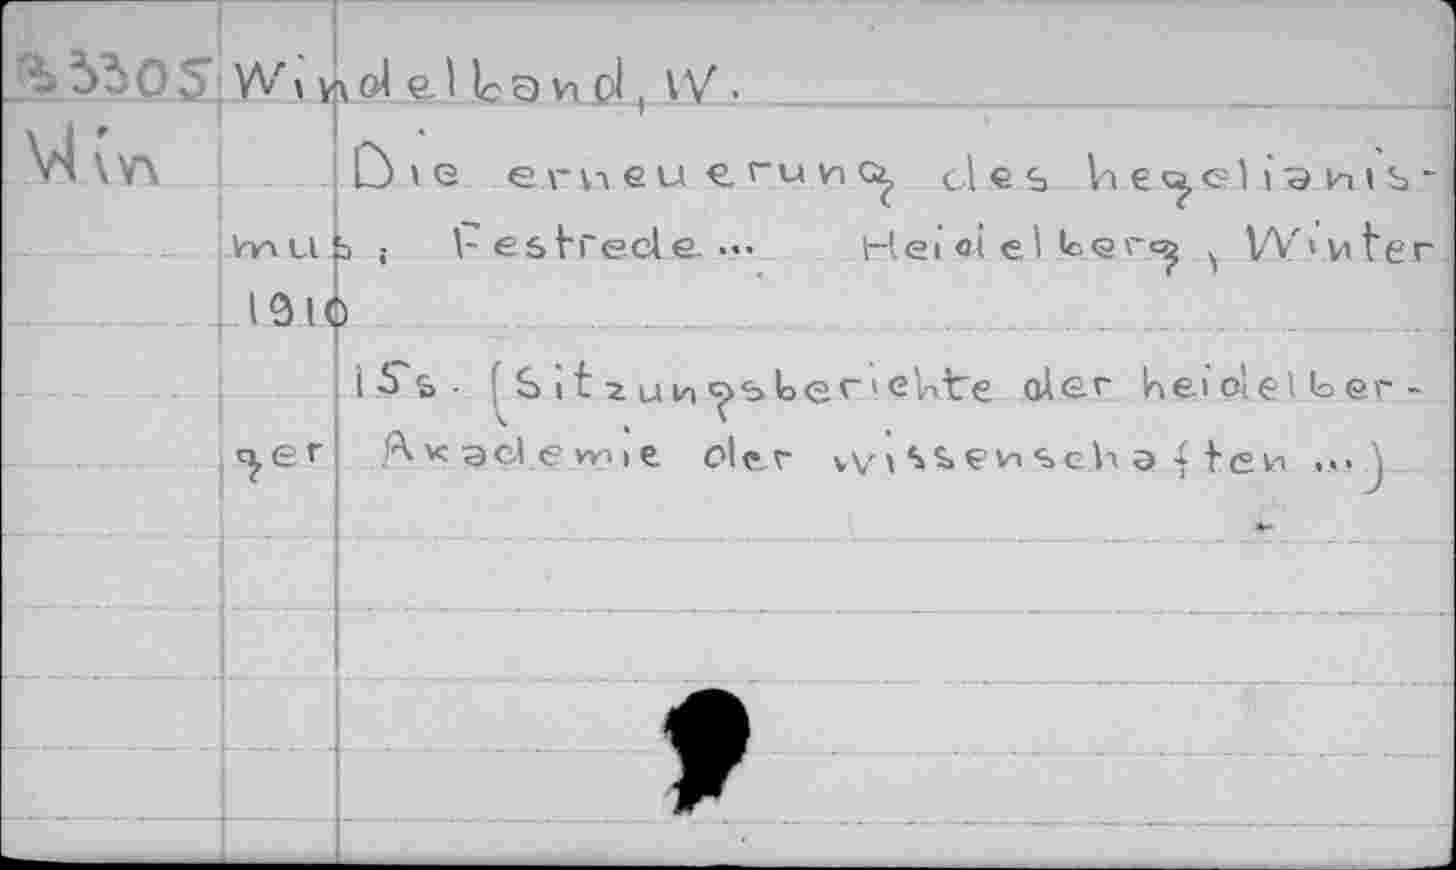 33305 Windelband, W.
Win Die erneuerung des hegelianis-
mus ; Festrede... Heidelberg, Winter
1910
15s. (Sitzungsberichte der heidelber-
ger Akademie der wissenschaften ...)